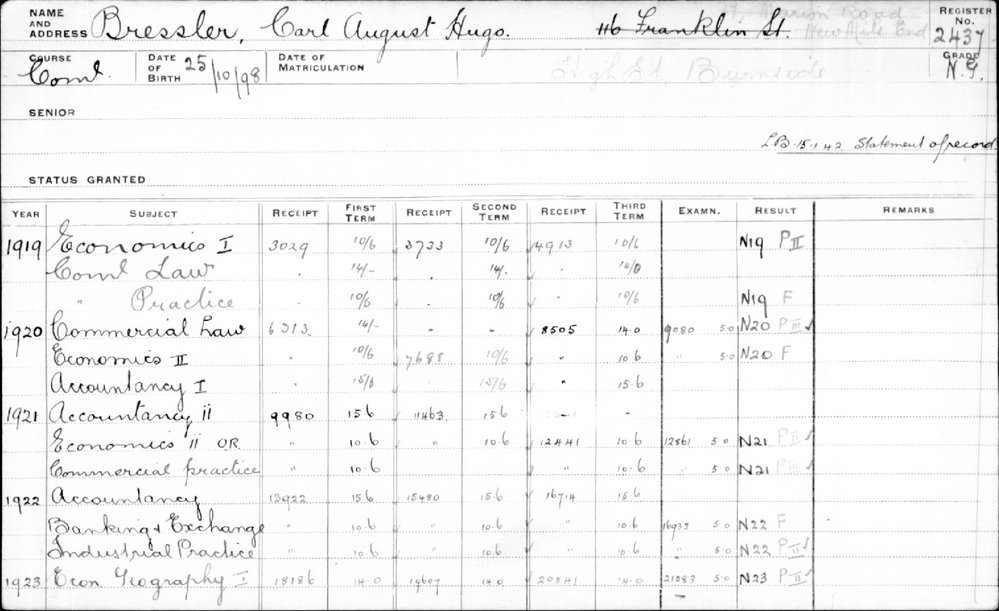 NAME AND ADDRESS Bressler, Carl August Hugo. 116 Franklin St. Marion Road New Mile End REGISTER No. 2437
COURSE Coml. DATE OF BIRTH 25/10/98 DATE OF MATRICULATION High St, Burnside GRADE N.G.
SENIOR
LB. 15.1.42 Statement of record.
STATUS GRANTED
YEAR SUBJECT RECEIPT FIRST TERM RECEIPT SECOND TERM RECEIPT THIRD TERM EXAMN. RESULT REMARKS
1919 Economics I 3029 10/6 3733 10/6 4913 10/6 N19 P II
Coml Law . 14/- . 14/- . 14/0
" Practice . 10/6 . 10/6 . 10/6 N19 F
1920 Commercial Law 6313 14/- - - 8505 14.0 9080 5.0 N20 P III ✓
Economics II . 10/6 7688 10/6 " 10.6 " 5.0 N20 F
Accountancy I . 15/6 . 15/6 " 15.6
1921 Accountancy ii 9980 15.6 11463 15.6 -
Economics ii O.R. " 10.6 " 10.6 12441 10.6 12561 5.0 N21 P II ✓
Commercial practice " 10.6 " 10.6 " 5.0 N21 P III ✓
1922 Accountancy 13922 15.6 15480 15.6 16714 15.6
Banking & Exchange " 10.6 " 10.6 " 10.6 16932 5.0 N22 F
Industrial Practice " 10.6 " 10.6 10.6 " 5.0 N22 P II ✓
1923 Econ. Geography I 18186 14.0 19607 14.0 20841 14.0 21283 5.0 N23 P II ✓